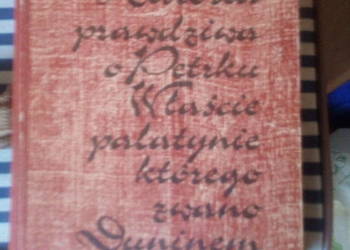 prawdziwa
o Petrku
Właście
palatynie
którego
zwano
Duninem